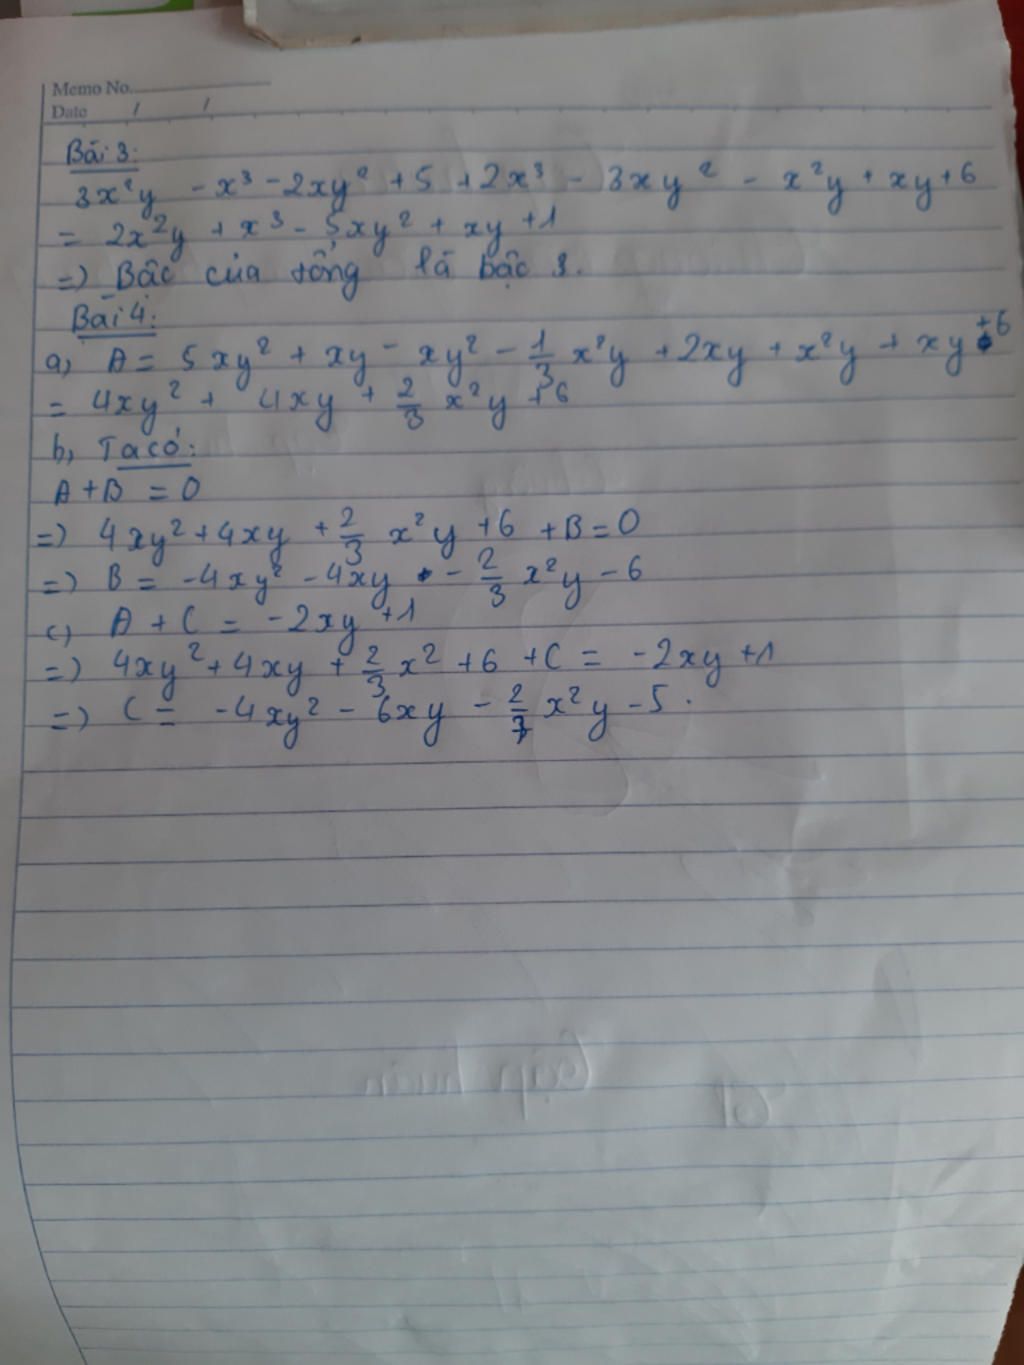 Memo No.
Date / /
Bài 3:
3x²y - x³ - 2xy² + 5 + 2x³ - 3xy² - x²y + xy + 6
= 2x²y + x³ - 5xy² + xy + 1
=) Bậc của tổng là bậc 3.
Bài 4:
a, A = 5xy² + xy - xy² - 1/3 x²y + 2xy + x²y + xy + 6
= 4xy² + 4xy + 2/3 x²y + 6
b, Ta có:
A + B = 0
=) 4xy² + 4xy + 2/3 x²y + 6 + B = 0
=) B = -4xy² - 4xy - 2/3 x²y - 6
c, A + C = -2xy + 1
=) 4xy² + 4xy + 2/3 x² + 6 + C = -2xy + 1
=) C = -4xy² - 6xy - 2/3 x²y - 5.